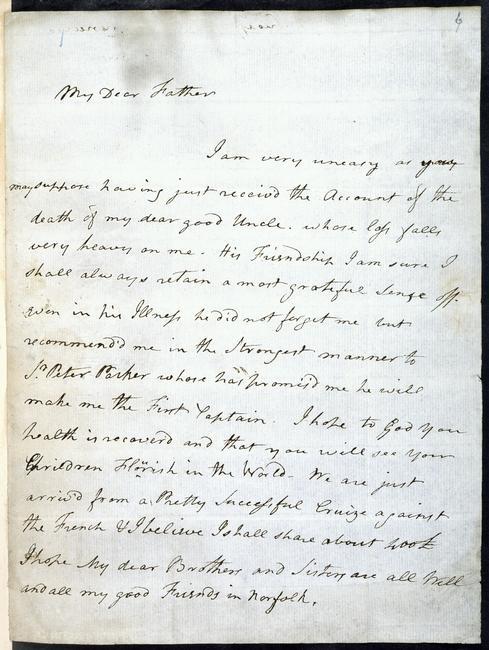 6
My Dear Father
I am very uneasy as you
may suppose having just receivd the Account of the
death of my dear good Uncle. whose loss falls
very heavy on me. His Friendship I am sure I
shall always retain a most grateful Sense off.
even in his Illness he did not forget me but
recommend'd me in the Strongest manner to
Sr. Peter Parker whose has promis'd me he will
make me the First Captain. I hope to God your
health is recoverd and that you will see your
Children Flourish in the World. We are just
arriv'd from a Pretty Successful Cruize against
the French & I believe I shall share about 400£
I hope My dear Brothers and Sisters are all Well
and all my good Friends in Norfolk.